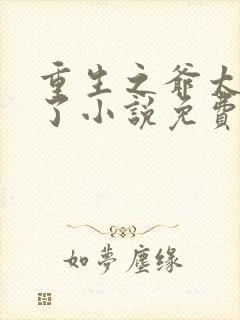 重生之爷太
了小說免費
如夢塵缘